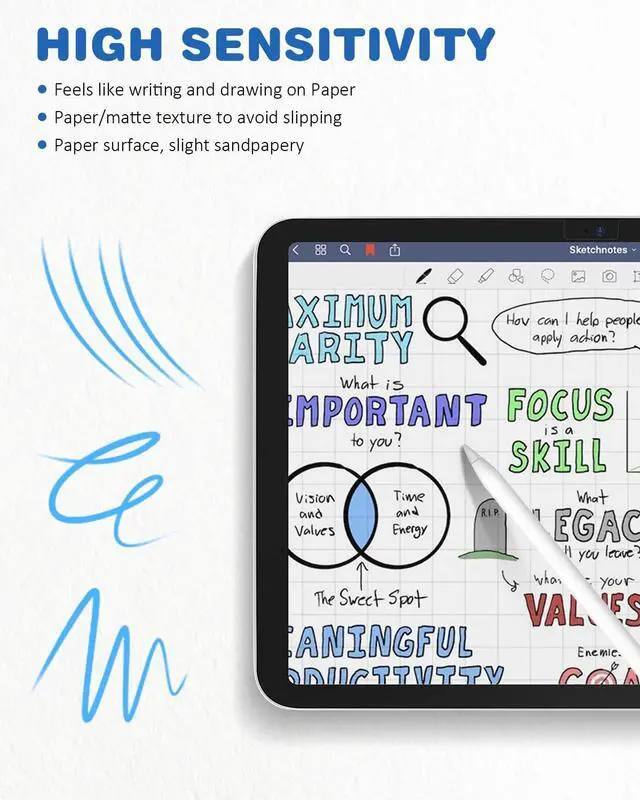 HIGH SENSITIVITY
Feels like writing and drawing on Paper
Paper/matte texture to avoid slipping
Paper surface, slight sandpapery
Sketchnotes
AXIMUM
ARITY
How can I help people
apply action?
What is
IMPORTANT
to you?
FOCUS
is a
SKILL
Vision
and
Values
Time
and
Energy
R.I.P.
What
EGAC
ll you leave?
The Sweet Spot
your
VALUES
EANINGFUL
ODUCTIVITY